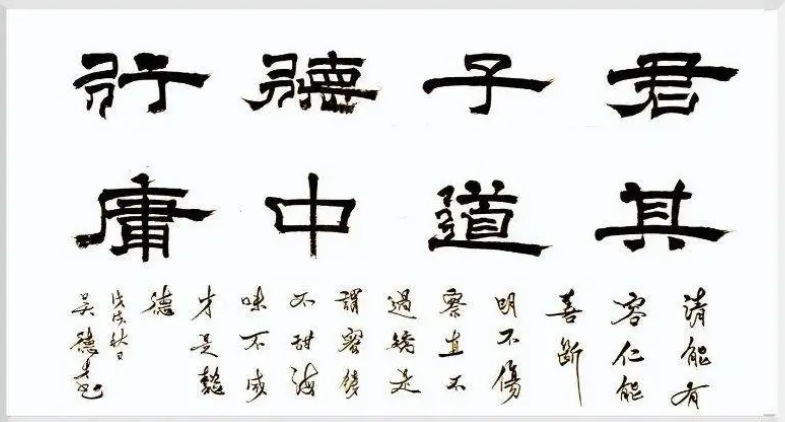 君子德行
其道中庸
清能有
容仁能
善斷
明不傷
察直不
過矯是
謂蜜餞
不甜海
味不咸
才是懿
德
戊戌秋日
吴德